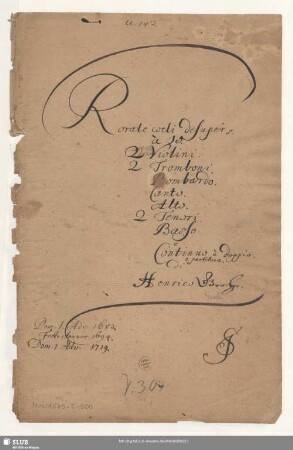 U 142
Rorate coeli desuper.
a 10
2 Violini.
2 Tromboni.
Bombardo.
Canto.
Alto.
2 Tenori
Basso
e
Continuo à doppio
e partitura.
Henrico
Dom. 1. Adv. 1682.
1694.
Dom. 1. Adv. 1719.
V. 304
SLUB